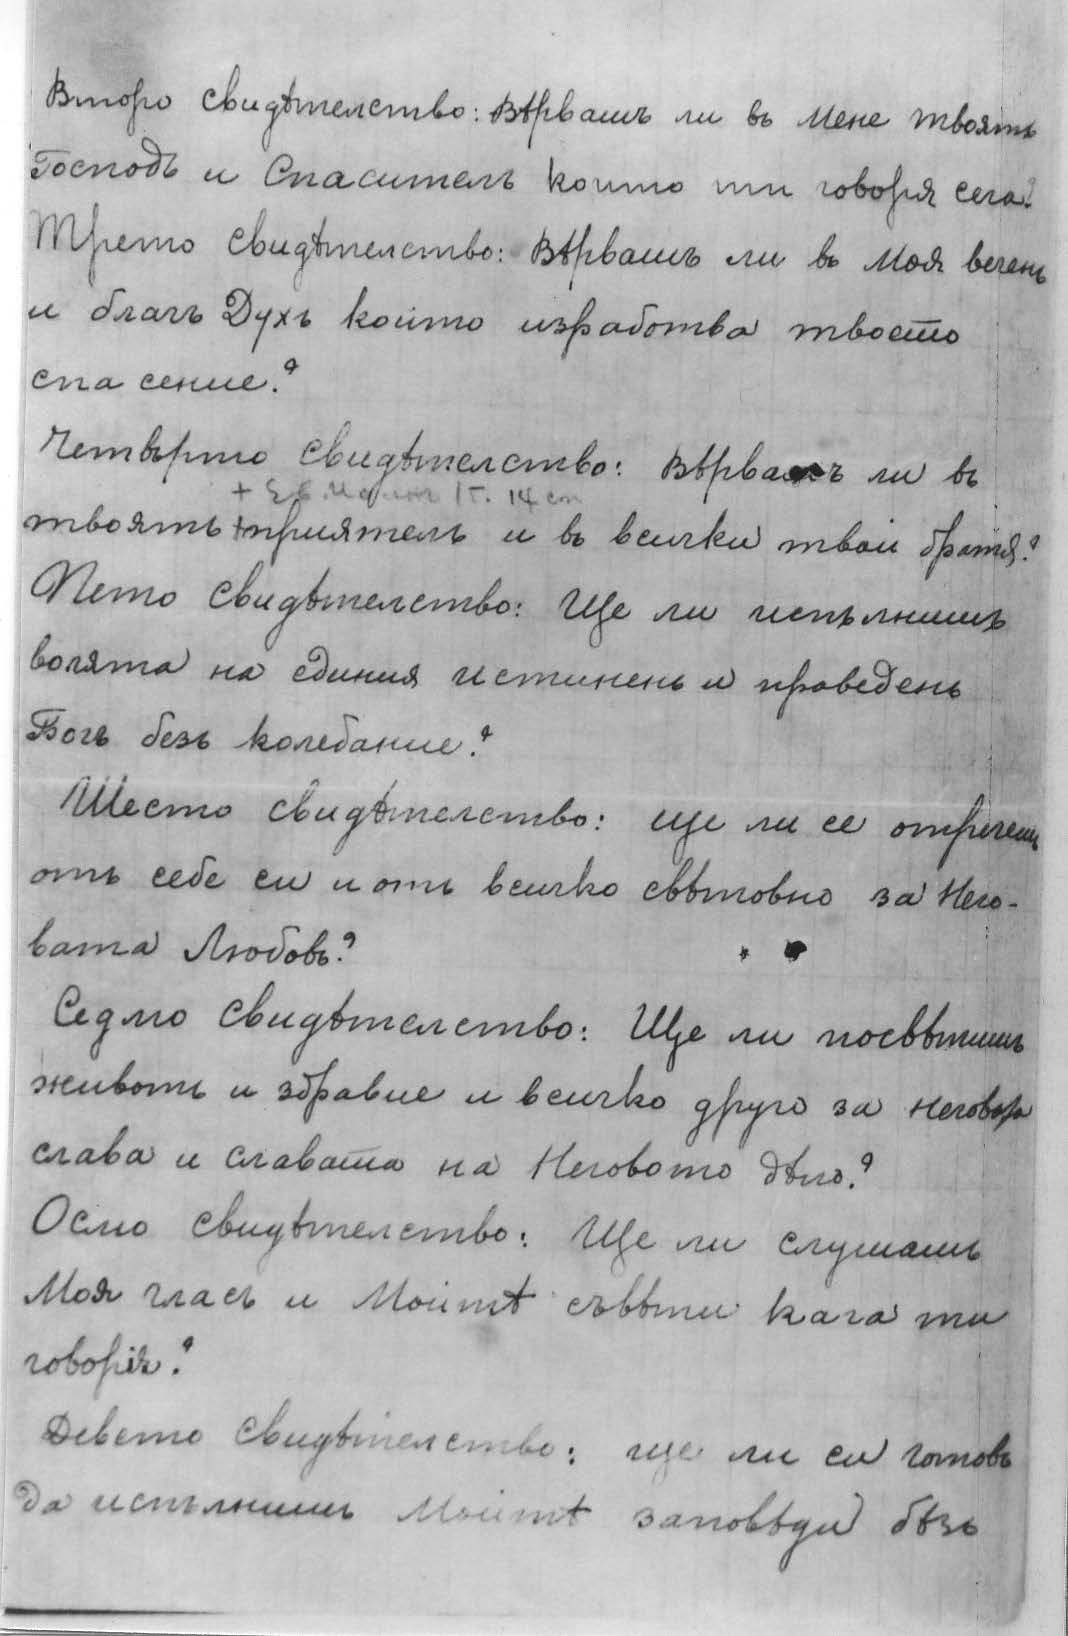 Второ свидѣтелство: Вѣрвашъ ли въ Мене твоятъ
Господъ и Спасителъ които ти говоря сега?
Трето свидѣтелство: Вѣрвашъ ли въ Моя веченъ
и благъ Духъ които изработва твоето
спасение?
Четвърто свидѣтелство: Вѣрвашъ ли въ
+ Ев. Иоанъ 15. 14 ст
твоятъ + приятелъ и въ всички твои братя?
Пето свидѣтелство: Ще ли испълнишъ
волята на единия истиненъ и праведенъ
Богъ безъ колебание?
Шесто свидѣтелство: ще ли се отречешъ
отъ себе си и отъ всичко свѣтовно за Него-
вата Любовь?
Седмо свидѣтелство: Ще ли посвѣтишъ
животъ и здравие и всичко друго за неговата
слава и славата на Неговото дѣло?
Осмо свидѣтелство: Ще ли слушашъ
Моя гласъ и Моитѣ съвѣти кага ти
говоріа?
Девето свидѣтелство: ще ли си готовъ
да испълнишъ Моитѣ заповѣди бѣзъ